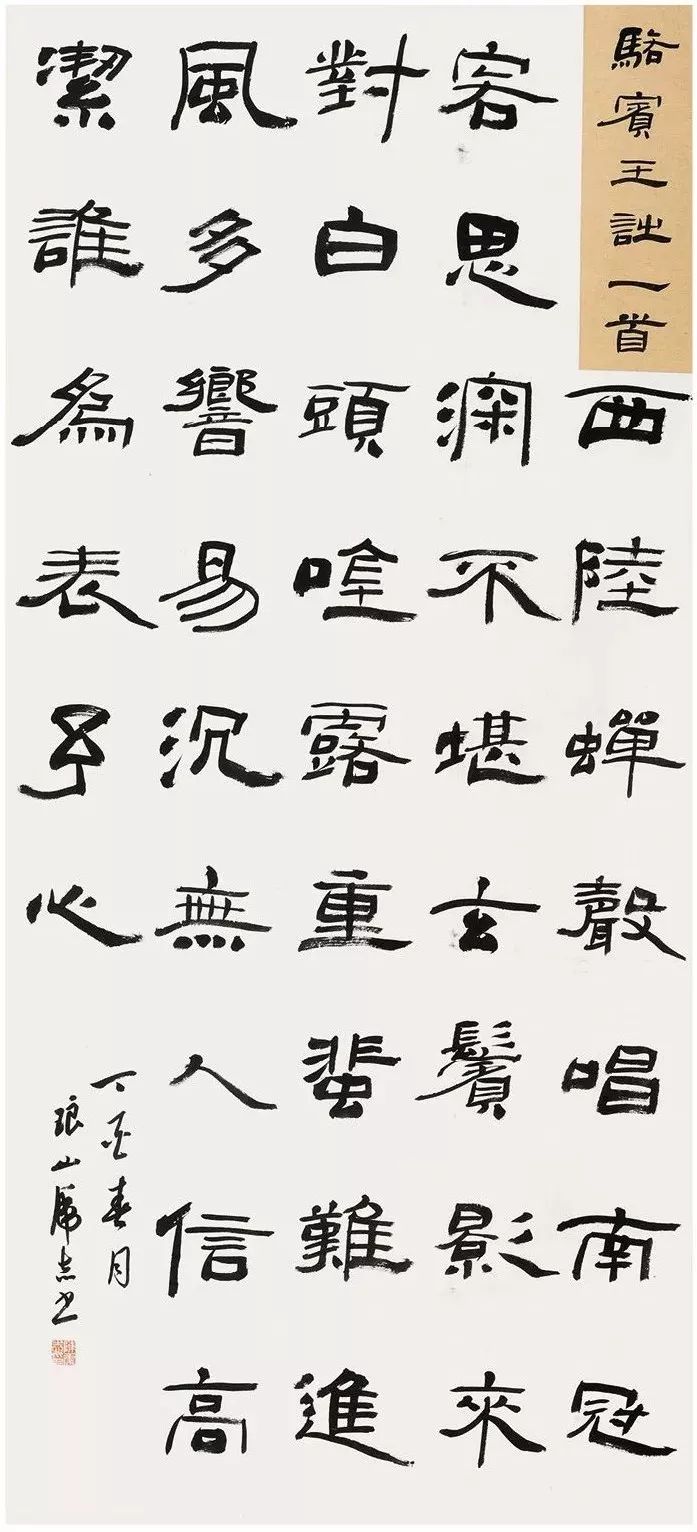 駱賓王詩一首
西陸蟬聲唱南冠
客思深不堪玄鬢影來
對白頭唫露重蜚難進
風多響易沉無人信高
潔誰爲表予心
丁酉春月
琅山志书